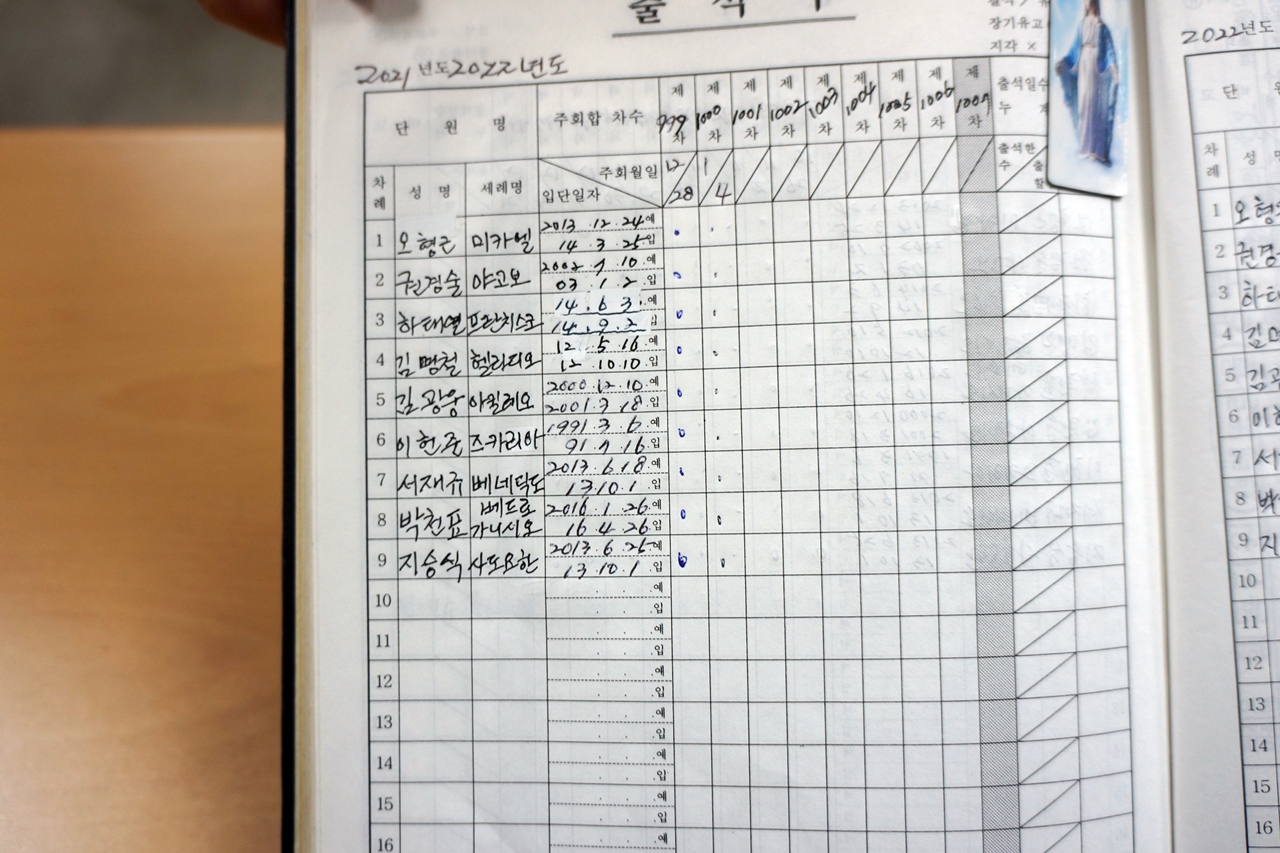 출 석 부
장기유고
지각 ×
2021 년도 2022 년도
단 원 명
주회합 차수
제 999 차
제 1000 차
제 1001 차
제 1002 차
제 1003 차
제 1004 차
제 1005 차
제 1006 차
제 1007 차
출석일수
누 계
차례
성 명
세례명
주회월일
입단일자
12/28
1/4
출석한
수
1 오형근 미카엘 2013. 12. 24. 예
14. 3. 25. 입
2 권경술 야고보 2002. 7. 10. 예
03. 1. 2. 입
3 하태열 프란치스코 14. 6. 3. 예
14. 9. 2. 입
4 김명철 헬라디오 12. 5. 16. 예
12. 10. 10. 입
5 김광웅 아킬레오 2000. 12. 10. 예
2001. 3. 18. 입
6 이헌준 즈카리아 1991. 3. 6. 예
91. 7. 16. 입
7 서재규 베네딕도 2013. 6. 18. 예
13. 10. 1. 입
8 박천표 베드로 가니시오 2016. 1. 26. 예
16. 4. 26. 입
9 지승식 사도요한 2013. 6. 25. 예
13. 10. 1. 입
10 . . . 예
. . . 입
11 . . . 예
. . . 입
12 . . . 예
. . . 입
13 . . . 예
. . . 입
14 . . . 예
. . . 입
15 . . . 예
. . . 입
16 . . . 예
2022년도
단
차례
성
1 오형
2 권경
3 하태
4 김
5 김광
6 이헌
7 서
8 박
9 지
10
11
12
13
14
15
16